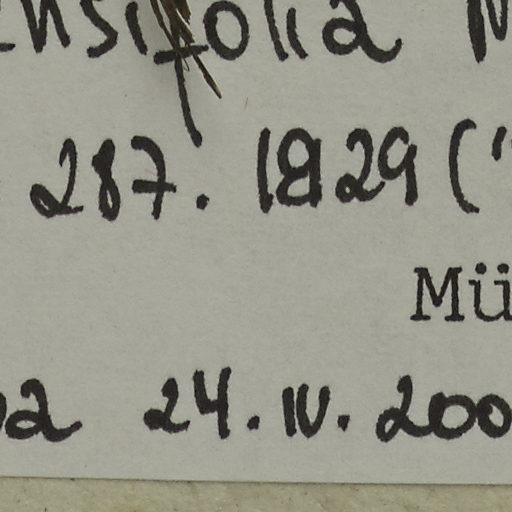 ensifolia
287. 1829 ("
Mü
24. IV. 200